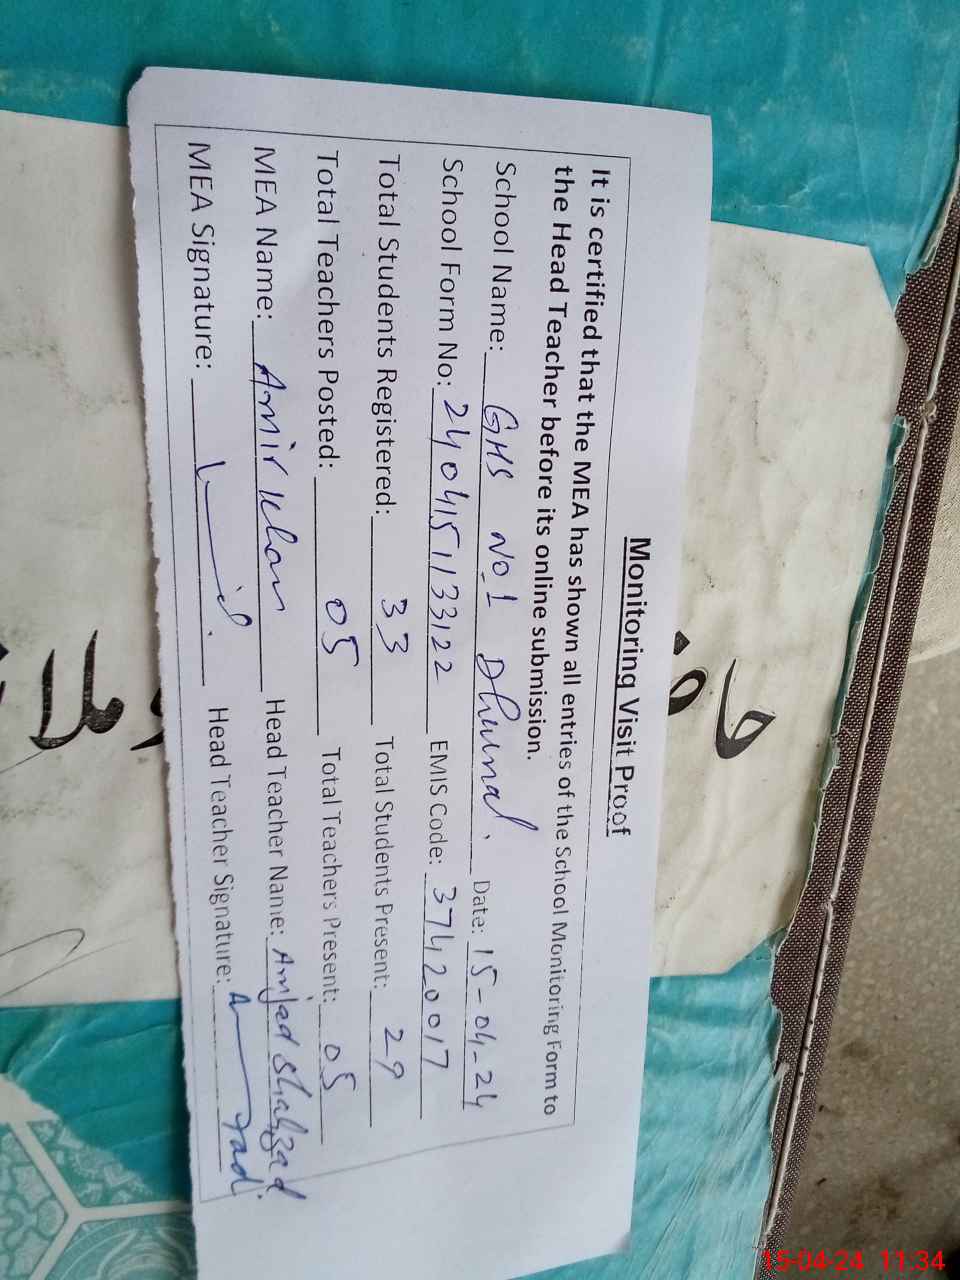 Monitoring Visit Proof
It is certified that the MEA has shown all entries of the School Monitoring Form to
the Head Teacher before its online submission.
School Name: GHS No 1 Dhurnal. Date: 15-04-24
School Form No: 2404151133122 EMIS Code: 37420017
Total Students Registered: 33 Total Students Present: 29
Total Teachers Posted: 05 Total Teachers Present: 05
MEA Name: Amir Khan Head Teacher Name: Amjad Shahzad
MEA Signature: Head Teacher Signature:
15-04-24 11:34